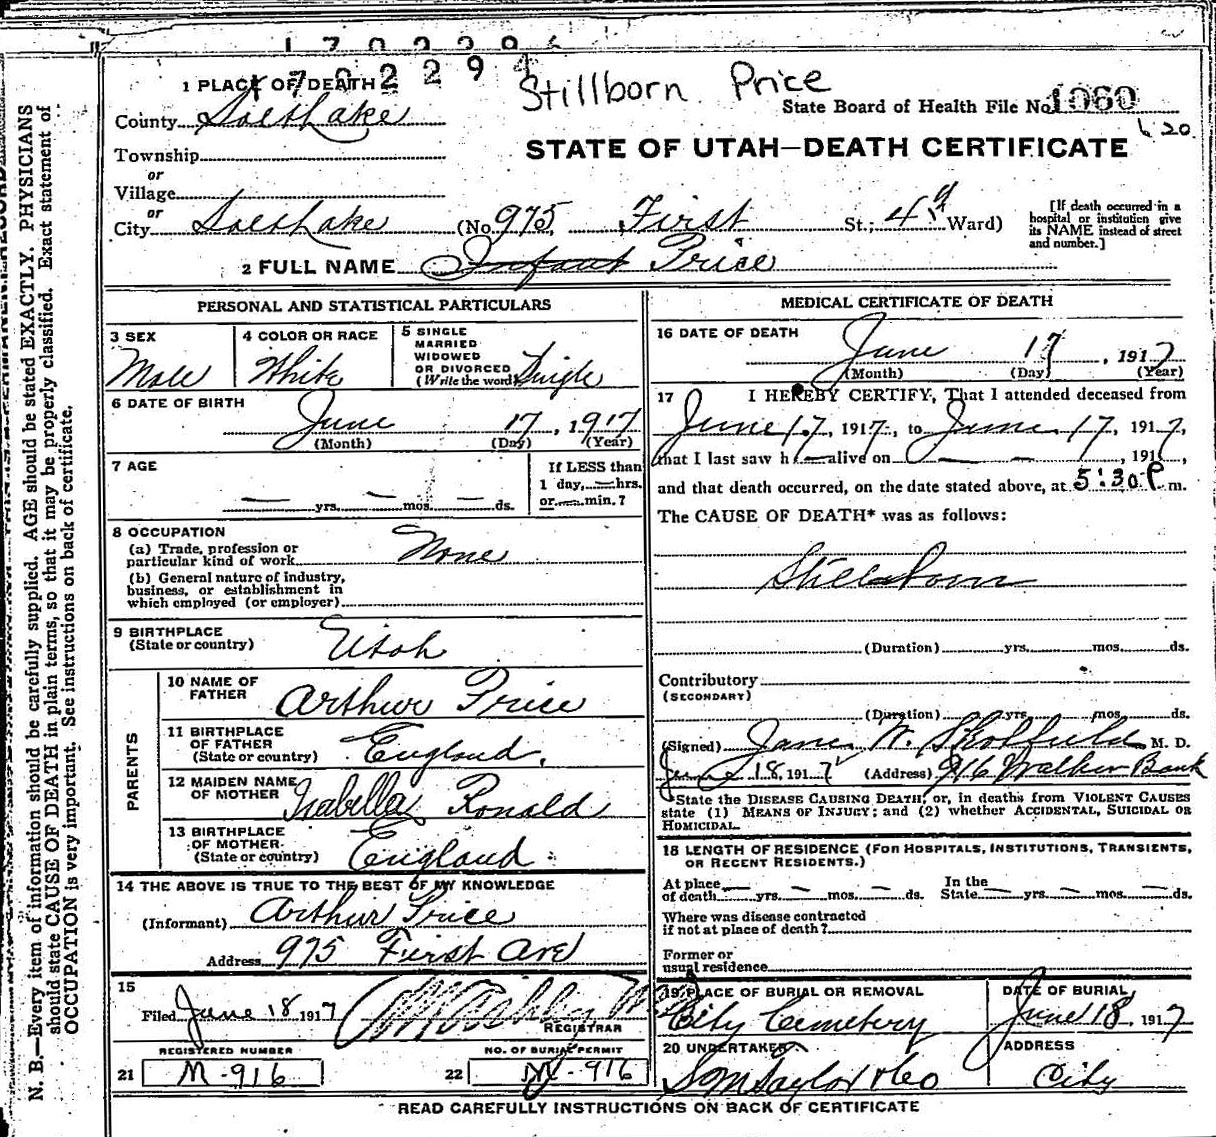 1702294
Stillborn Price
1 PLACE OF DEATH
State Board of Health File No. 1060
County Salt Lake
620
STATE OF UTAH—DEATH CERTIFICATE
Township
or
Village
or
City Salt Lake (No. 975, First St.; 4th Ward)
[If death occurred in a hospital or institution give its NAME instead of street and number.]
2 FULL NAME Infant Price
PERSONAL AND STATISTICAL PARTICULARS
3 SEX Male
4 COLOR OR RACE White
5 SINGLE MARRIED WIDOWED OR DIVORCED (Write the word) Single
6 DATE OF BIRTH
June 17, 1917
(Month) (Day) (Year)
7 AGE
— yrs. — mos. — ds.
If LESS than
1 day, — hrs.
or — min.?
8 OCCUPATION
(a) Trade, profession or
particular kind of work None
(b) General nature of industry,
business, or establishment in
which employed (or employer)
9 BIRTHPLACE
(State or country) Utah
PARENTS
10 NAME OF
FATHER Arthur Price
11 BIRTHPLACE
OF FATHER
(State or country) England.
12 MAIDEN NAME
OF MOTHER Isabella Ronald
13 BIRTHPLACE
OF MOTHER
(State or country) England
14 THE ABOVE IS TRUE TO THE BEST OF MY KNOWLEDGE
(Informant) Arthur Price
Address 975 First Ave
15
Filed June 18 1917
REGISTRAR
REGISTERED NUMBER
21 M-916
NO. OF BURIAL PERMIT
22 M-916
MEDICAL CERTIFICATE OF DEATH
16 DATE OF DEATH
June 17, 1917
(Month) (Day) (Year)
17 I HEREBY CERTIFY, That I attended deceased from
June 17, 1917, to June 17, 1917,
that I last saw h — alive on — — —, 191 ,
and that death occurred, on the date stated above, at 5:30 P. m.
The CAUSE OF DEATH* was as follows:
Stillborn
(Duration) yrs. mos. ds.
Contributory
(SECONDARY)
(Duration) yrs. mos. ds.
(Signed) W. M. D.
June 18, 1917 (Address) 916 Walker Bank
*State the DISEASE CAUSING DEATH, or, in deaths from VIOLENT CAUSES
state (1) MEANS OF INJURY; and (2) whether ACCIDENTAL, SUICIDAL OR
HOMICIDAL.
18 LENGTH OF RESIDENCE (FOR HOSPITALS, INSTITUTIONS, TRANSIENTS,
OR RECENT RESIDENTS.)
At place
of death — yrs. — mos. — ds. In the
State — yrs. — mos. — ds.
Where was disease contracted
if not at place of death?
Former or
usual residence
19 PLACE OF BURIAL OR REMOVAL
City Cemetery
DATE OF BURIAL
June 18, 1917
20 UNDERTAKER
S M Taylor & Co
ADDRESS
City
READ CAREFULLY INSTRUCTIONS ON BACK OF CERTIFICATE
N. B.—Every item of information should be carefully supplied. AGE should be stated EXACTLY. PHYSICIANS
should state CAUSE OF DEATH in plain terms, so that it may be properly classified. Exact statement of
OCCUPATION is very important. See instructions on back of certificate.